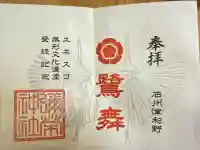 奉拝
石州津和野
鷺舞
ユネスコ
無形文化遺産
登録記念